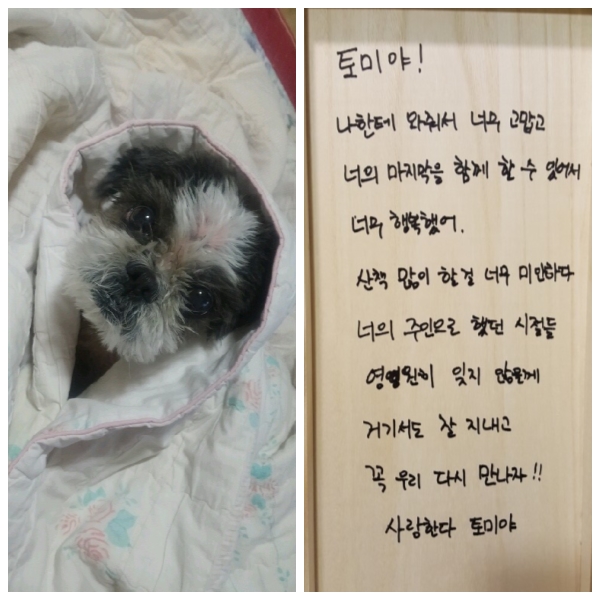 토미야!
나한테 와줘서 너무 고맙고
너의 마지막을 함께 할 수 있어서
너무 행복했어.
산책 많이 할걸 너무 미안하다
너의 주인으로 했던 시절들
영원히 잊지 않을께
거기서도 잘 지내고
꼭 우리 다시 만나자!!
사랑한다 토미야